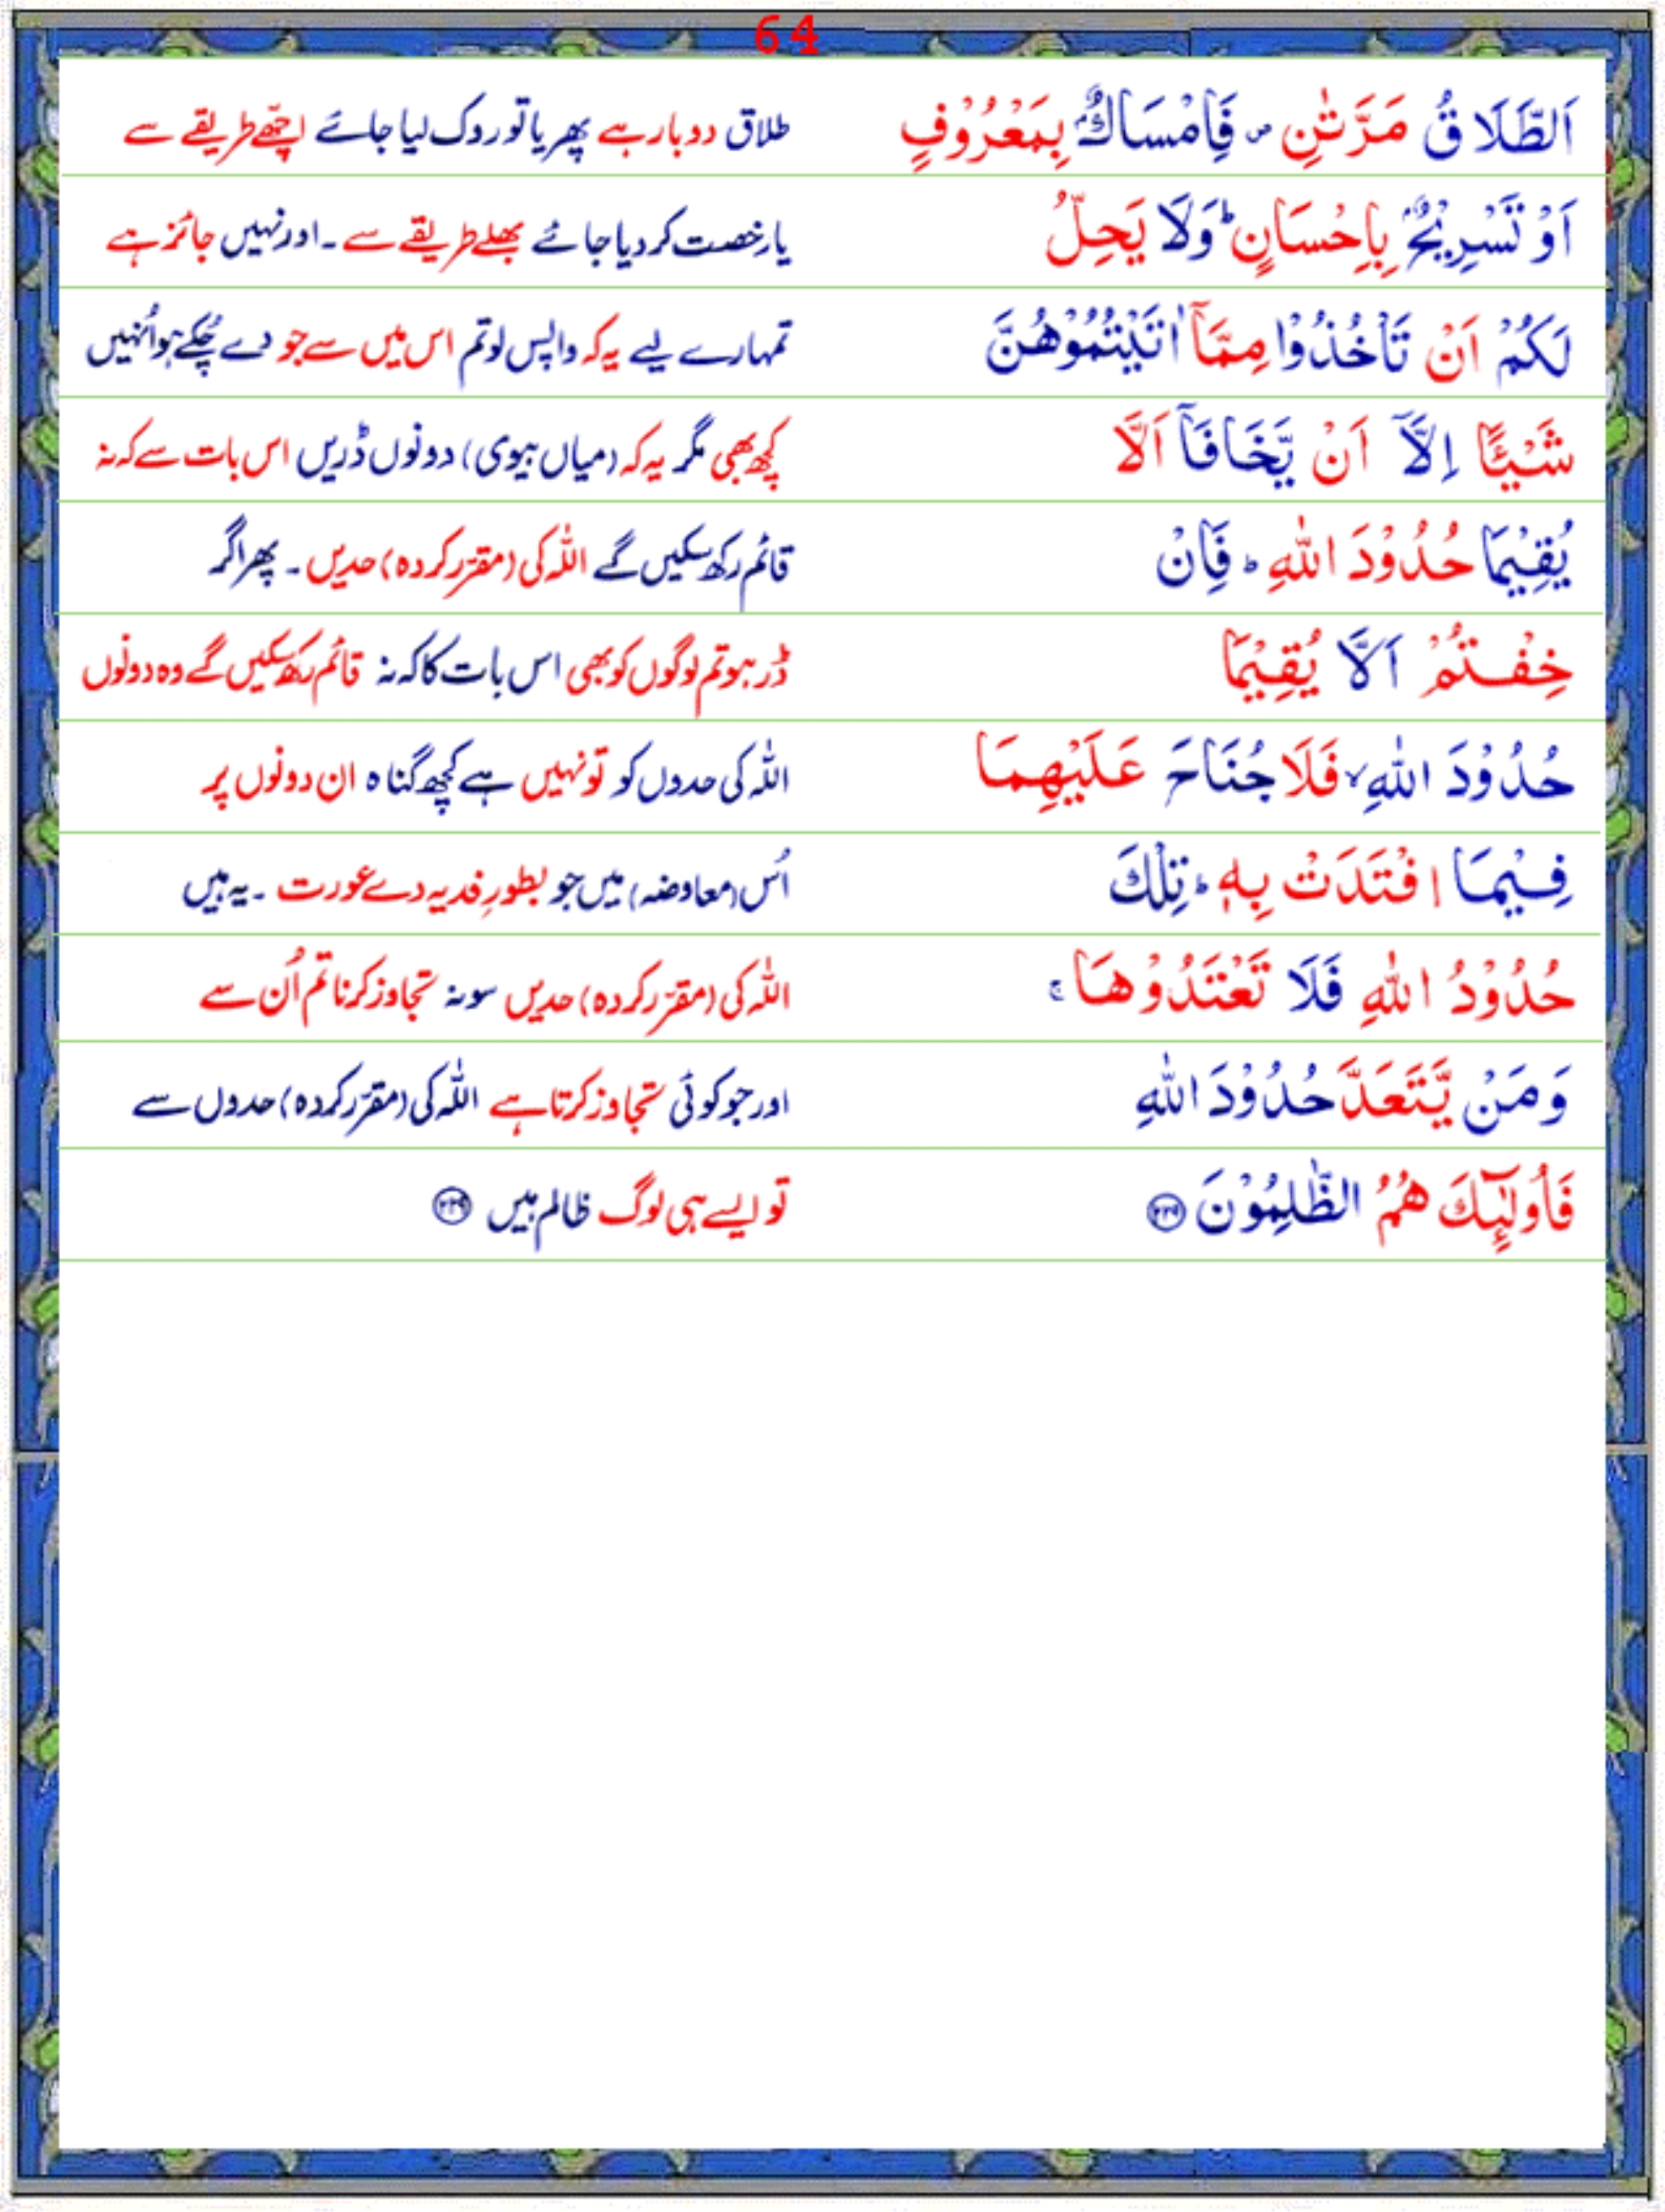 64
اَلطَّلَاقُ مَرَّتٰنِ ۪ فَاِمْسَاكٌۢ بِمَعْرُوْفٍ طلاق دوبار ہے پھر یا تو روک لیا جائے اچھّے طریقے سے
اَوْ تَسْرِيْحٌۢ بِاِحْسَانٍ ؕ وَلَا يَحِلُّ یا رخصت کر دیا جائے بھلے طریقے سے ۔ اور نہیں جائز ہے
لَكُمْ اَنْ تَاْخُذُوْا مِمَّاۤ اٰتَيْتُمُوْهُنَّ تمہارے لیے یہ کہ واپس لو تم اس میں سے جو دے چُکے ہو اُنہیں
شَيْـًٔا اِلَّاۤ اَنْ يَّخَافَاۤ اَلَّا کچھ بھی مگر یہ کہ (میاں بیوی) دونوں ڈریں اس بات سے کہ نہ
يُقِيْمَا حُدُوْدَ اللّٰهِ ؕ فَاِنْ قائم رکھ سکیں گے اللہ کی (مقرّر کردہ) حدیں ۔ پھر اگر
خِفْتُمْ اَلَّا يُقِيْمَا ڈر ہو تم لوگوں کو بھی اس بات کا کہ نہ قائم رکھ سکیں گے وہ دونوں
حُدُوْدَ اللّٰهِ ۙ فَلَا جُنَاحَ عَلَيْهِمَا اللہ کی حدوں کو تو نہیں ہے کچھ گناہ ان دونوں پر
فِيْمَا افْتَدَتْ بِهٖ ؕ تِلْكَ اُس (معاوضہ) میں جو بطورِ فدیہ دے عورت ۔ یہ ہیں
حُدُوْدُ اللّٰهِ فَلَا تَعْتَدُوْهَا ۚ اللہ کی (مقرّر کردہ) حدیں سو نہ تجاوز کرنا تم اُن سے
وَمَنْ يَّتَعَدَّ حُدُوْدَ اللّٰهِ اور جو کوئی تجاوز کرتا ہے اللہ کی (مقرّر کردہ) حدوں سے
فَاُولٰٓئِكَ هُمُ الظّٰلِمُوْنَ ۲۲۹ تو ایسے ہی لوگ ظالم ہیں ۲۲۹